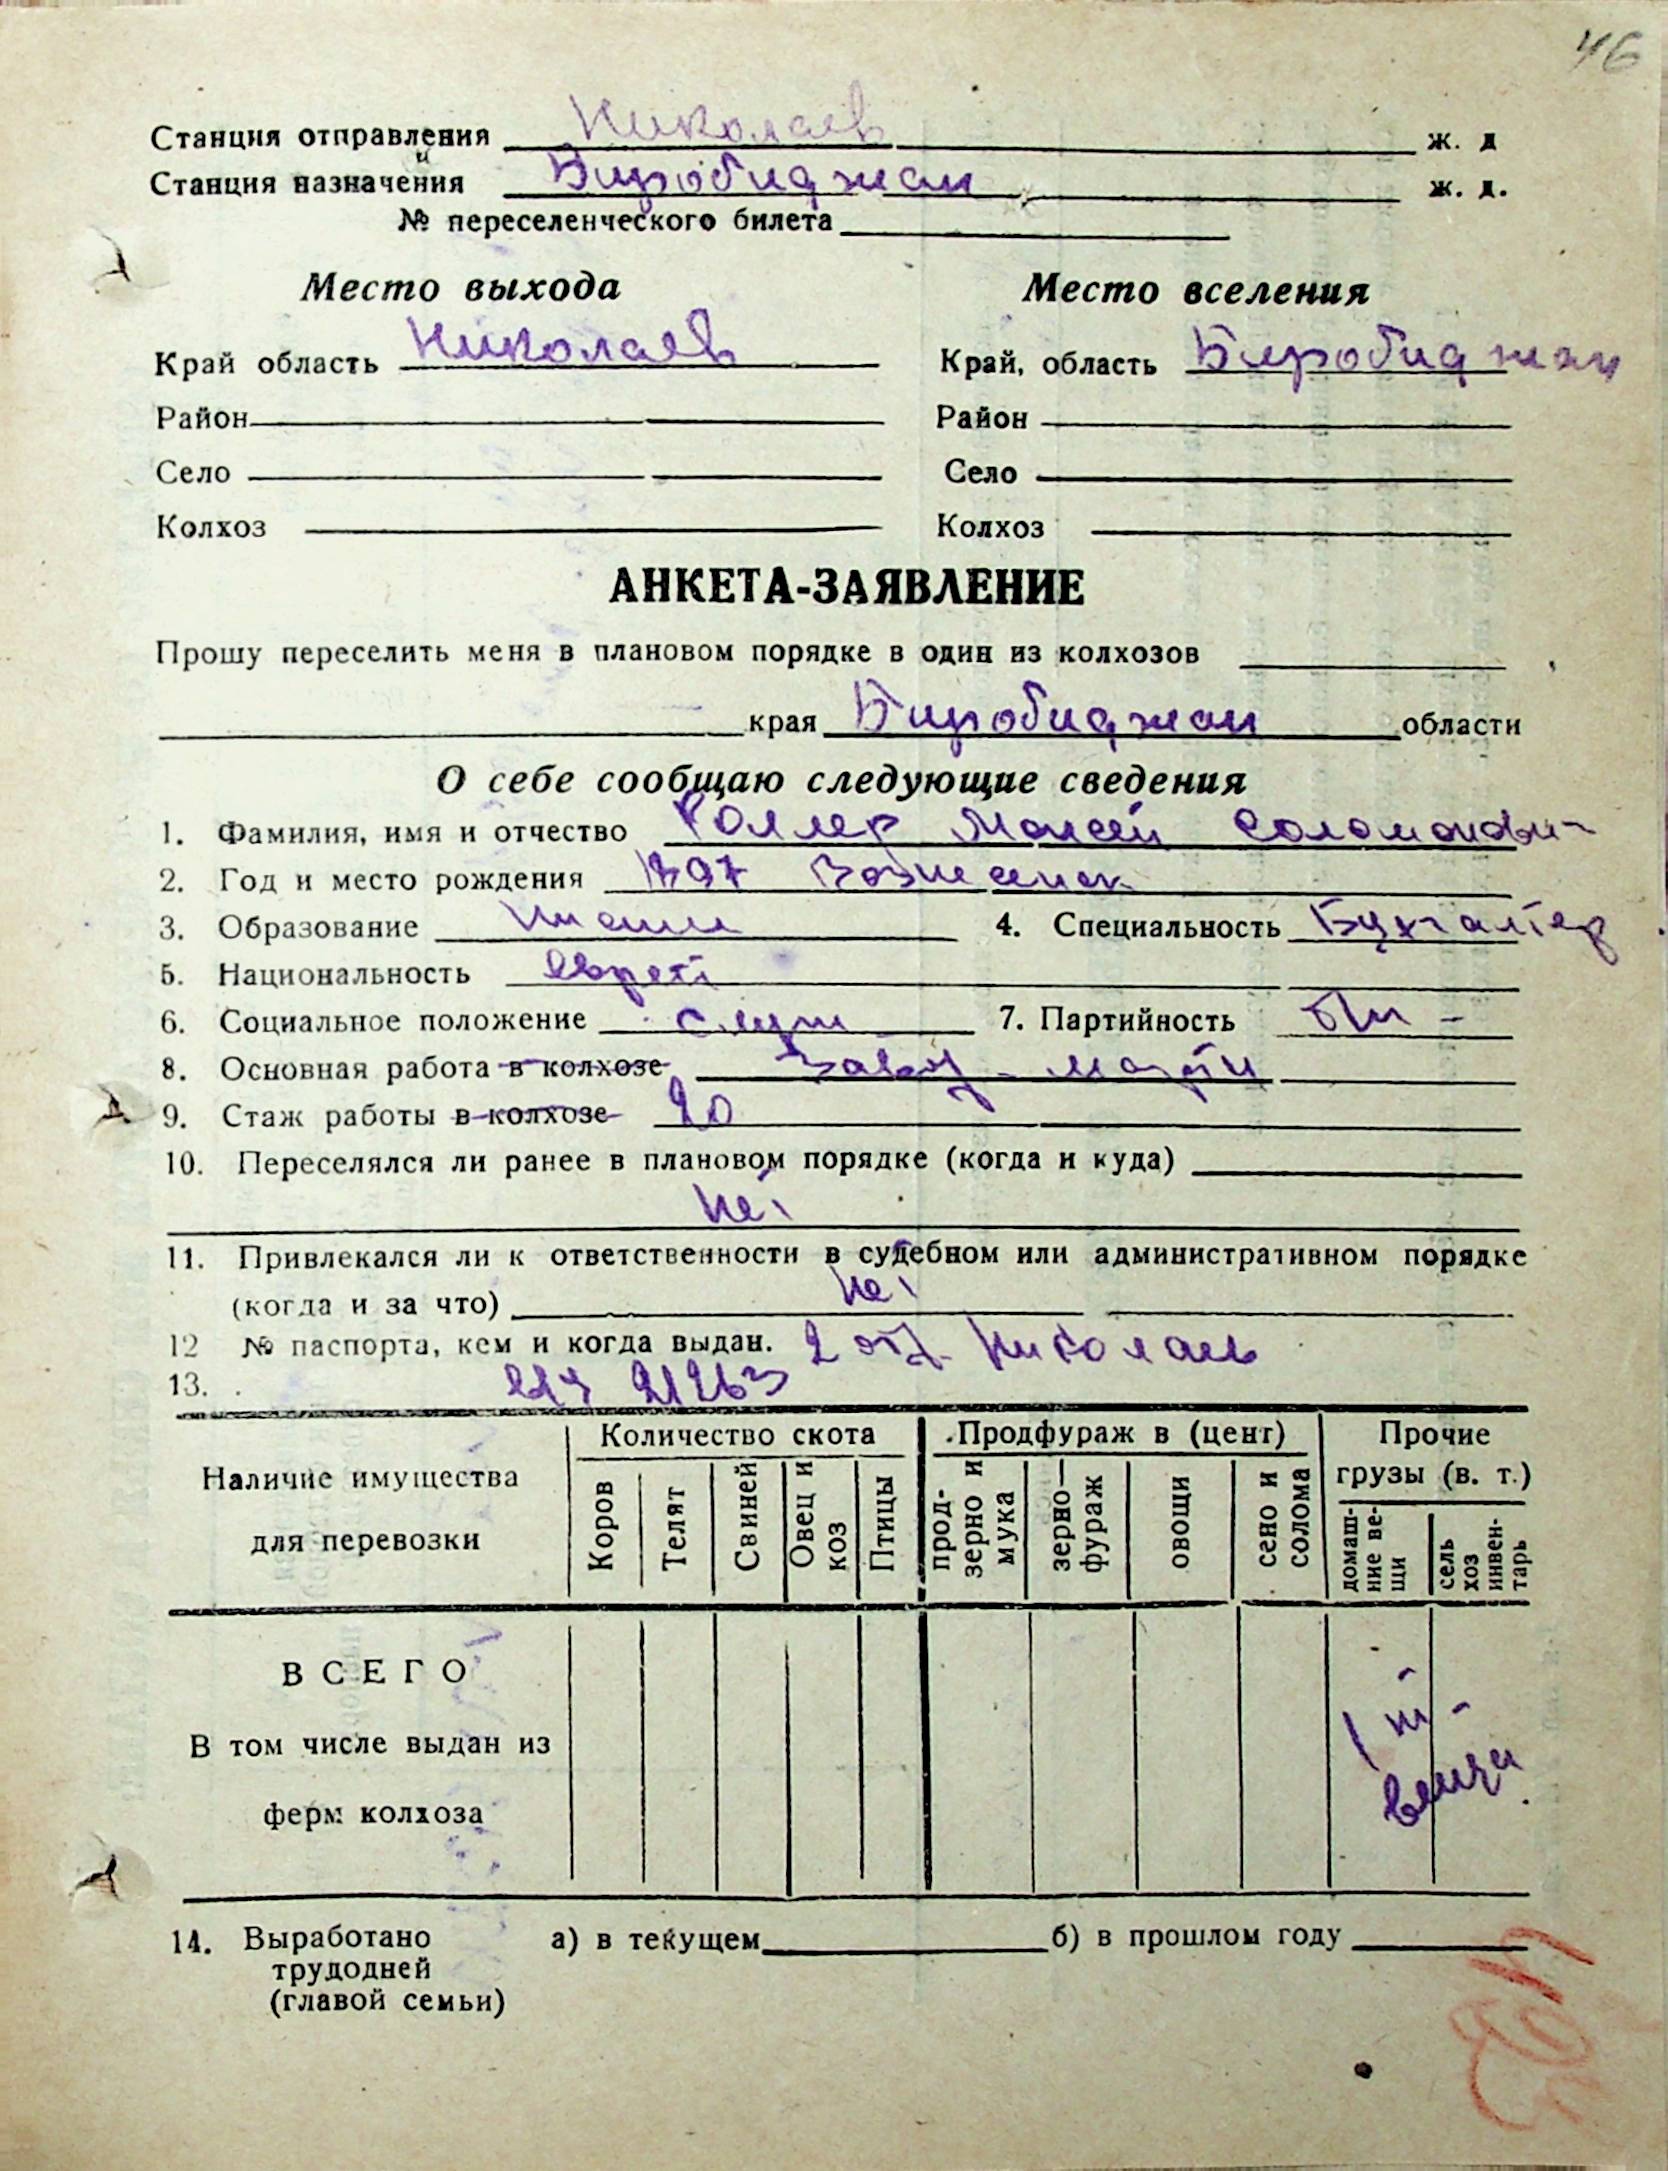 46
Станция отправления Николаев ж. д
Станция назначения Биробиджан ж. д.
№ переселенческого билета
Место выхода Место вселения
Край область Николаев Край, область Биробиджан
Район Район
Село Село
Колхоз Колхоз
АНКЕТА-ЗАЯВЛЕНИЕ
Прошу переселить меня в плановом порядке в один из колхозов
края Биробиджан области
О себе сообщаю следующие сведения
1. Фамилия, имя и отчество Роллер Моисей Соломонович
2. Год и место рождения 1897 Вознесенск
3. Образование 4. Специальность Бухгалтер
5. Национальность еврей
6. Социальное положение служ 7. Партийность б/п -
8. Основная работа в колхозе Завод - Марти
9. Стаж работы в колхозе 20
10. Переселялся ли ранее в плановом порядке (когда и куда)
Нет
11. Привлекался ли к ответственности в судебном или административном порядке
(когда и за что) Нет
12 № паспорта, кем и когда выдан. 2 отд. Николаев
13.
Наличие имущества для перевозки Количество скота Продфураж в (цент) Прочие грузы (в. т.)
Коров Телят Свиней Овец и коз Птицы прод-зерно и мука зерно-фураж овощи сено и солома домаш-ние ве-щи сель хоз инвен-тарь
ВСЕГО
В том числе выдан из
ферм колхоза
1 т -
вещи
14. Выработано а) в текущем б) в прошлом году
трудодней
(главой семьи)